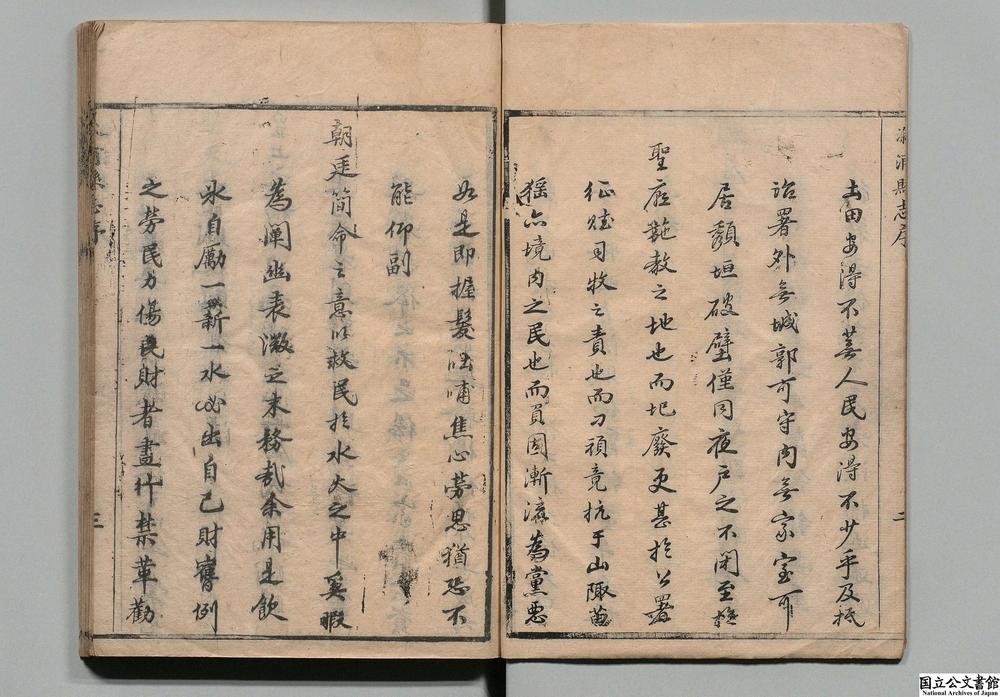 土田安得不蕪人民安得不少乎及抵
治署外無城郭可守內無家室可
居頽垣破壁僅同夜戶之不閉至極
聖廟施教之地也而圮廢更甚於公署
征賦司牧之責也而刁頑竟抗于山陬苗
猺亦境內之民也而負固漸滋為黨惡
二
如是即握髮吐哺焦心勞思猶恐不
能仰副
朝廷簡命之意以救民於水火之中奚暇
為闡幽表微之末務哉余用是飲
氷自勵一薪一水必出自己財舊例
之勞民力傷民財者盡什禁革勸
三
国立公文書館
National Archives of Japan